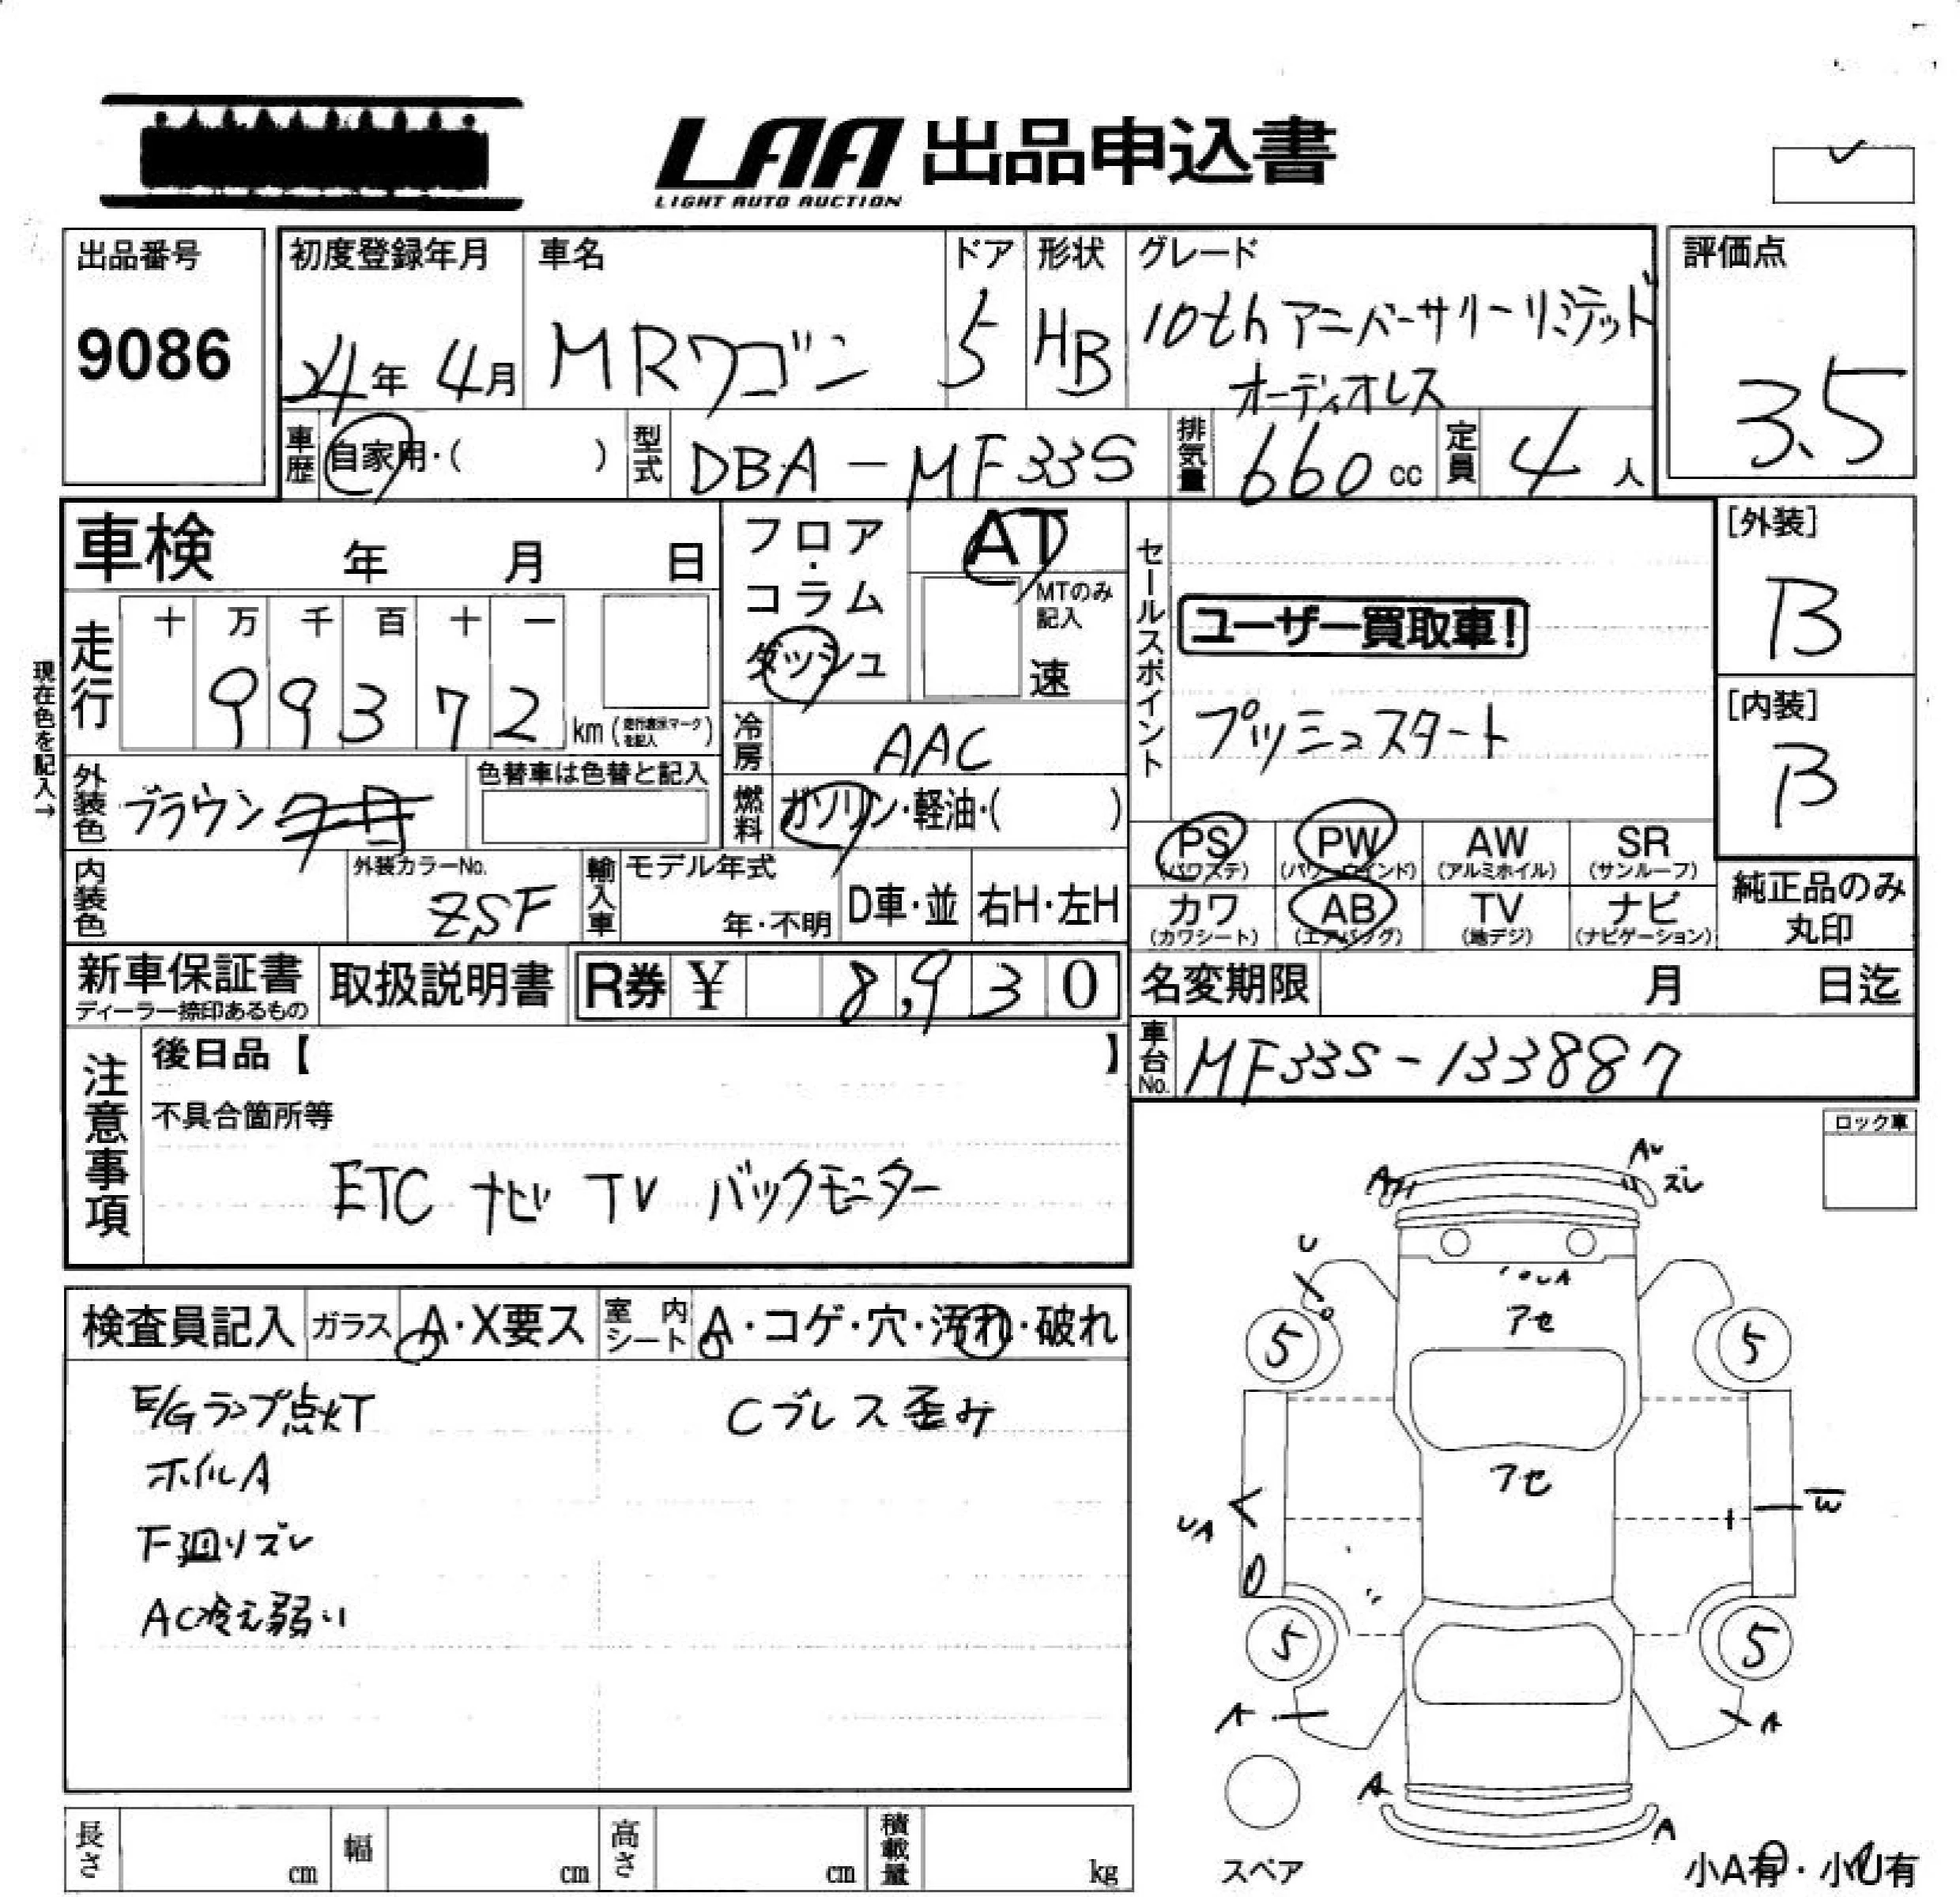 LAA 出品申込書
LIGHT AUTO AUCTION
出品番号
9086
初度登録年月
24年 4月
車名
MRワゴン
ドア
5
形状
HB
グレード
10th アニバーサリーリミテッド
オーディオレス
評価点
3.5
車歴
自家用・( )
型式
DBA-MF33S
排気量
660 cc
定員
4 人
車検 年 月 日
現在色を記入→
走行
十 万 千 百 十 一
9 9 3 7 2
km (走行表示マークを記入)
フロア・コラム
ダッシュ
AT
MTのみ
記入
速
冷房
AAC
燃料
ガソリン・軽油・( )
外装色
ブラウン
色替車は色替と記入
内装色
外装カラーNo.
ZSF
輸入車
モデル年式
年・不明
D車・並
右H・左H
セールスポイント
ユーザー買取車!
プッシュスタート
[外装]
B
[内装]
B
PS
(パワステ)
PW
(パワーウインド)
AW
(アルミホイル)
SR
(サンルーフ)
カワ
(カワシート)
AB
(エアバッグ)
TV
(地デジ)
ナビ
(ナビゲーション)
純正品のみ
丸印
新車保証書
ディーラー捺印あるもの
取扱説明書
R券 ¥ 8,930
名変期限 月 日迄
車台No.
MF33S-133887
注意事項
後日品【 】
不具合箇所等
ETC ナビ TV バックモニター
ロック車
検査員記入
ガラス
A・X要ス
室内シート
A・コゲ・穴・汚れ・破れ
E/Gランプ点灯
Cブレス歪み
ホイルA
下廻りズレ
AC冷え弱い
A
AU
ズレ
U
アセ
5
5
アセ
UA
W
5
5
A
A
A
A
スペア
小A有・小U有
長さ cm
幅 cm
高さ cm
積載量 kg